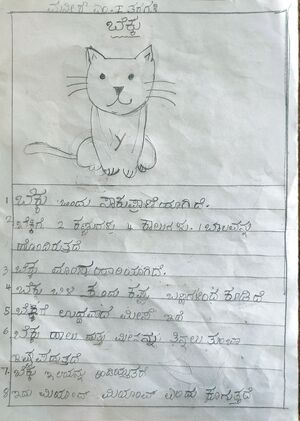 ಬೆಕ್ಕು
1 ಬೆಕ್ಕು ಒಂದು ಸಾಕುಪ್ರಾಣಿಯಾಗಿದೆ.
2 ಬೆಕ್ಕಿಗೆ 2 ಕಣ್ಣುಗಳು 4 ಕಾಲುಗಳು. 1 ಬಾಲವನ್ನು
ಹೊಂದಿರುತ್ತದೆ
3 ಬೆಕ್ಕು ಮಾಂಸಹಾರಿಯಾಗಿದೆ.
4 ಬೆಕ್ಕು ಬಿಳಿ ಕಂದು ಕಪ್ಪು ಬಣ್ಣಗಳಿಂದ ಕೂಡಿದೆ
5 ಬೆಕ್ಕಿಗೆ ಉದ್ದವಾದ ಮೀಸೆ ಇದೆ
6 ಬೆಕ್ಕು ಹಾಲು ಮತ್ತು ಮೀನನ್ನು ತಿನ್ನಲು ತುಂಬಾ
ಇಷ್ಟಪಡುತ್ತದೆ
7 ಬೆಕ್ಕು ಇಲಿಯನ್ನು ಹಿಡಿಯುತ್ತದೆ
8 ಇದು ಮಿಯಾಂವ್ ಮಿಯಾಂವ್ ಎಂದು ಕೂಗುತ್ತದೆ